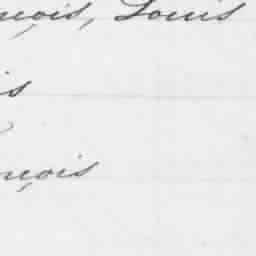 nçois, Louis
is
nçois